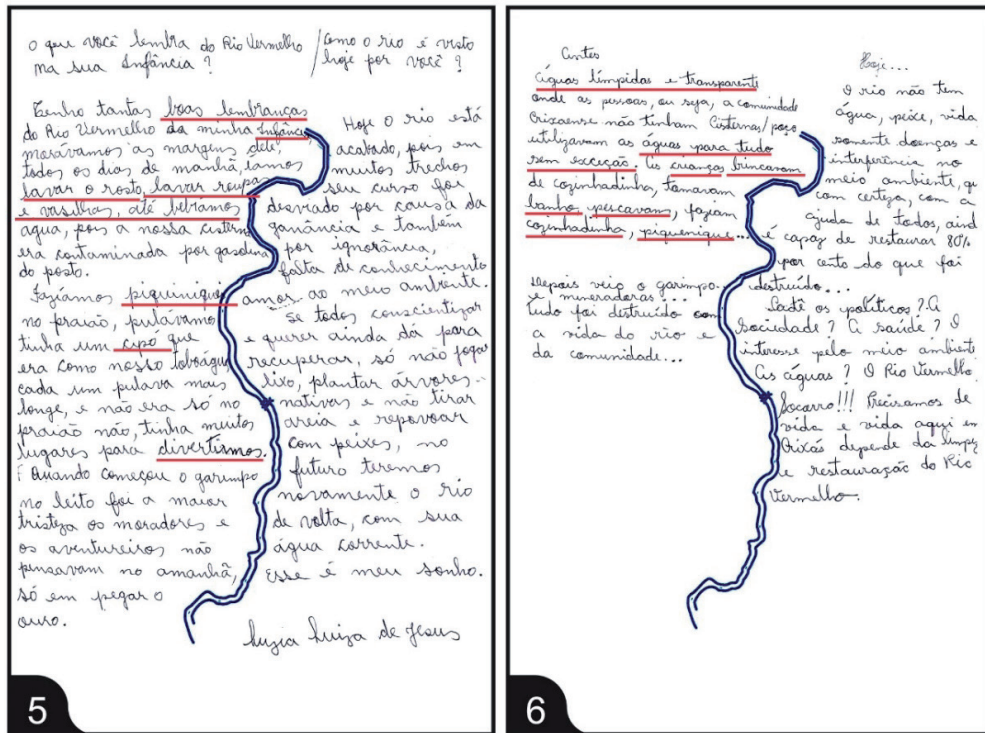 O que você lembra do Rio Vermelho
na sua Infância?
/ Como o rio é visto
hoje por você?
Tenho tantas boas lembranças
do Rio Vermelho da minha Infância
morávamos as margens dele,
todos os dias de manhã, íamos
lavar o rosto, lavar roupas
e vasilhas, até bebíamos
água, pois a nossa cisterna
era contaminada por gasolina
do posto.
Fazíamos piquinique
no praião, pulávamos
tinha um cipo que
era como nosso toboágua,
cada um pulava mais
longe, e não era só no
praião não, tinha muitos
lugares para divertirmos.
Quando começou o garimpo
no leito foi a maior
tristeza os moradores e
os aventureiros não
pensavam no amanhã,
só em pegar o
ouro.
Hoje o rio está
acabado, pois em
muitos trechos
seu curso foi
desviado por causa da
ganância e também
por ignorância,
falta de conhecimento
amor ao meio ambiente.
Se todos conscientizar
e querer ainda dá para
recuperar, só não jogar
lixo, plantar árvores
nativas e não tirar
areia e repovoar
com peixes, no
futuro teremos
novamente o rio
de volta, com sua
água corrente.
Esse é meu sonho.
Luzia Luiza de Jesus
5
Antes
Águas límpidas e transparente
onde as pessoas, ou seja, a comunidade
Crixaense não tinham Cisternas/poço
utilizavam as águas para tudo
sem exceção. As crianças brincavam
de cozinhadinha, tomavam
banho, pescavam, faziam
cozinhadinha, piquenique...
Depois veio o garimpo...
e mineradoras...
Tudo foi destruído com
a vida do rio e
da comunidade...
Hoje...
O rio não tem
água, peixe, vida
somente doenças e
interferência no
meio ambiente, qu
com certeza, com a
ajuda de todos, aind
é capaz de restaurar 80%
por cento do que foi
destruído...
Cadê os políticos? A
Sociedade? A saúde? O
interesse pelo meio ambient
As águas? O Rio Vermelho
Socorro!!! Precisamos de
vida e vida aqui em
Crixás depende da limpez
e restauração do Rio
Vermelho.
6